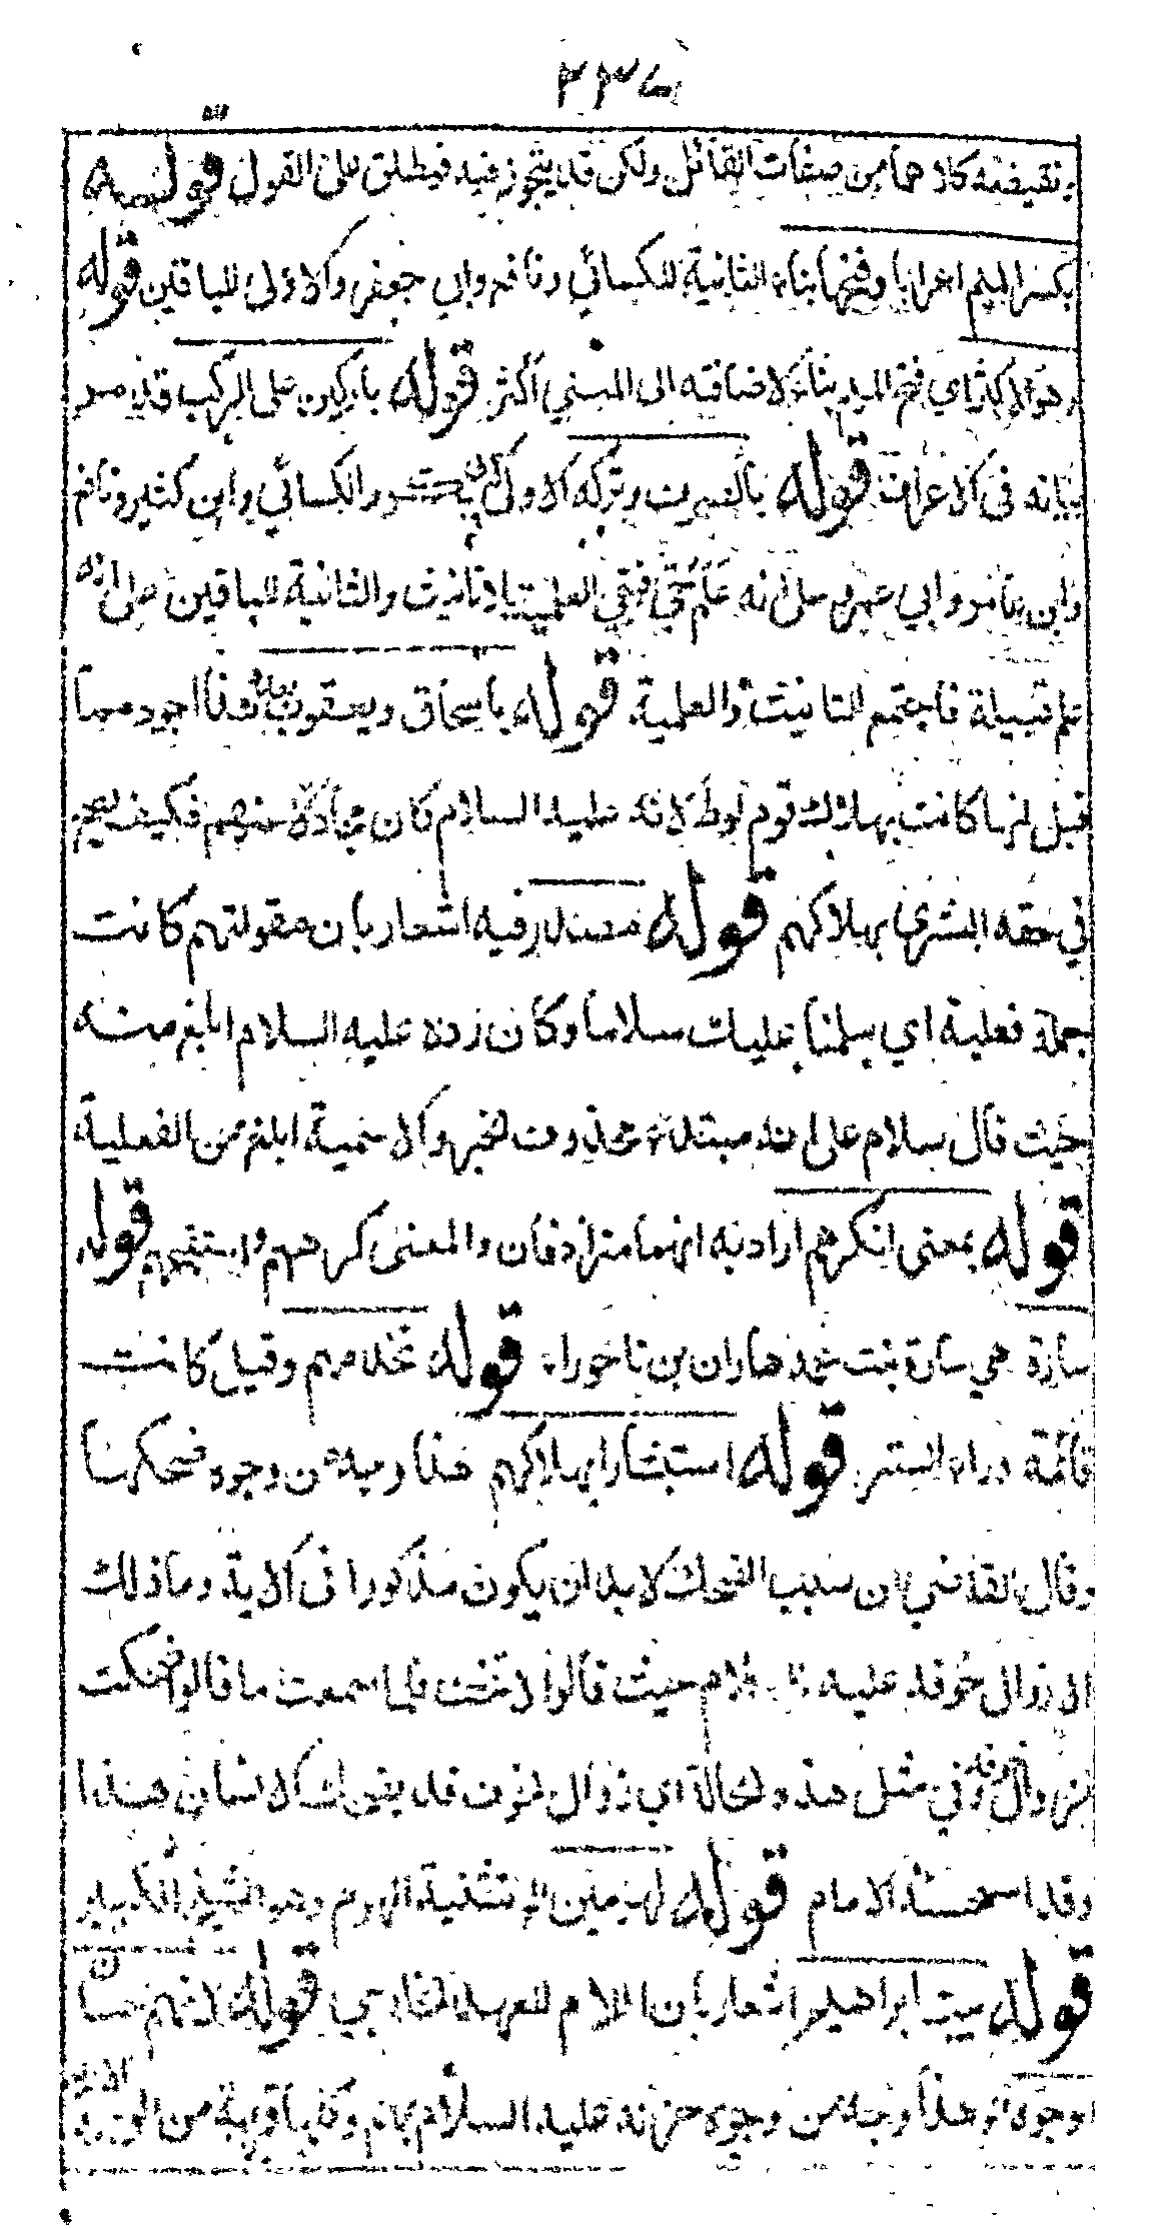 ٢٣٤
ونقيضه كلاهما من صفات القائل ولكن قد يتجوز فيه فيطلق على القول قوله
بكسر الميم اعرابا وفتحها بناء الثانية للكسائي ونافع وابي جعفر والاولى للباقين قوله
وهو الاكثر اي فتح الميم بناء لاضافته الى المبني اكثر قوله باركين على الركب قد مر
بيانه في الاعراف قوله بالصرف وتركه الاولى الكسائي وابن كثير ونافع
وابن عامر وابي عمرو على انه علم حي ففي العلمية بلا تانيث والثانية للباقين على انه
علم قبيلة فاجتمع التانيث والعلمية قوله باسحاق ويعقوب بعده هذا اجود مما
قيل انها كانت بهلاك قوم لوط لانه عليه السلام كان منهم فكيف
في حقه البشرى بهلاكهم قوله مصدر فيه اشعار بان مقولتهم كانت
جملة فعلية اي سلمنا عليك سلاما وكان رده عليه السلام ابلغ منه
حيث قال سلام على انه مبتدء محذوف الخبر والاسمية ابلغ من الفعلية
قوله بمعنى انكرهم اراد به انهما مترادفان والمعنى كرههم واستقبحهم قوله
سارة هي سارة بنت عمه هاران بن ناحورا قوله تخدمهم وقيل كانت
قائمة وراء الستر قوله استبشارا بهلاكهم هذا وجه من وجوه ضحكها
وقال القاضي ان سبب الضحك لابد ان يكون مذكورا في الاية وما ذلك
الا زوال خوفه عليه السلام حيث قالوا لا تخف فلما سمعت ما قالوا ضحكت
لزوال خوفه وفي مثل هذه الحالة اي زوال الخوف قد يضحك الانسان هذا
وقد استحسنه الامام قوله
قوله بيت ابراهيم اشعار بان اللام للعهد الخارجي قوله لانهم حسان
الوجوه هذا وجه من وجوه حزنه عليه السلام